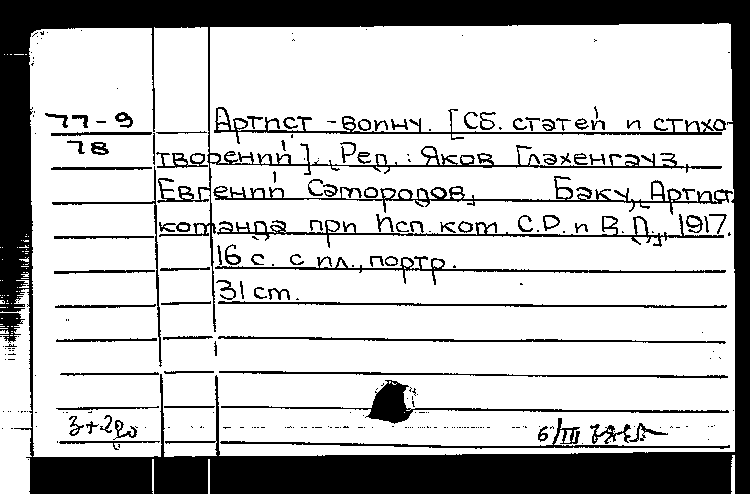 77-9
78
Артист - воину. [Сб. статей и стихо-
творений]. Ред.: Яков Гляхенгауз,
Евгений Самородов. Баку, Артист.
команда при Исп. ком. С.Р. и В.Д., 1917.
16 с. с ил., портр.
31 cm.
6/III